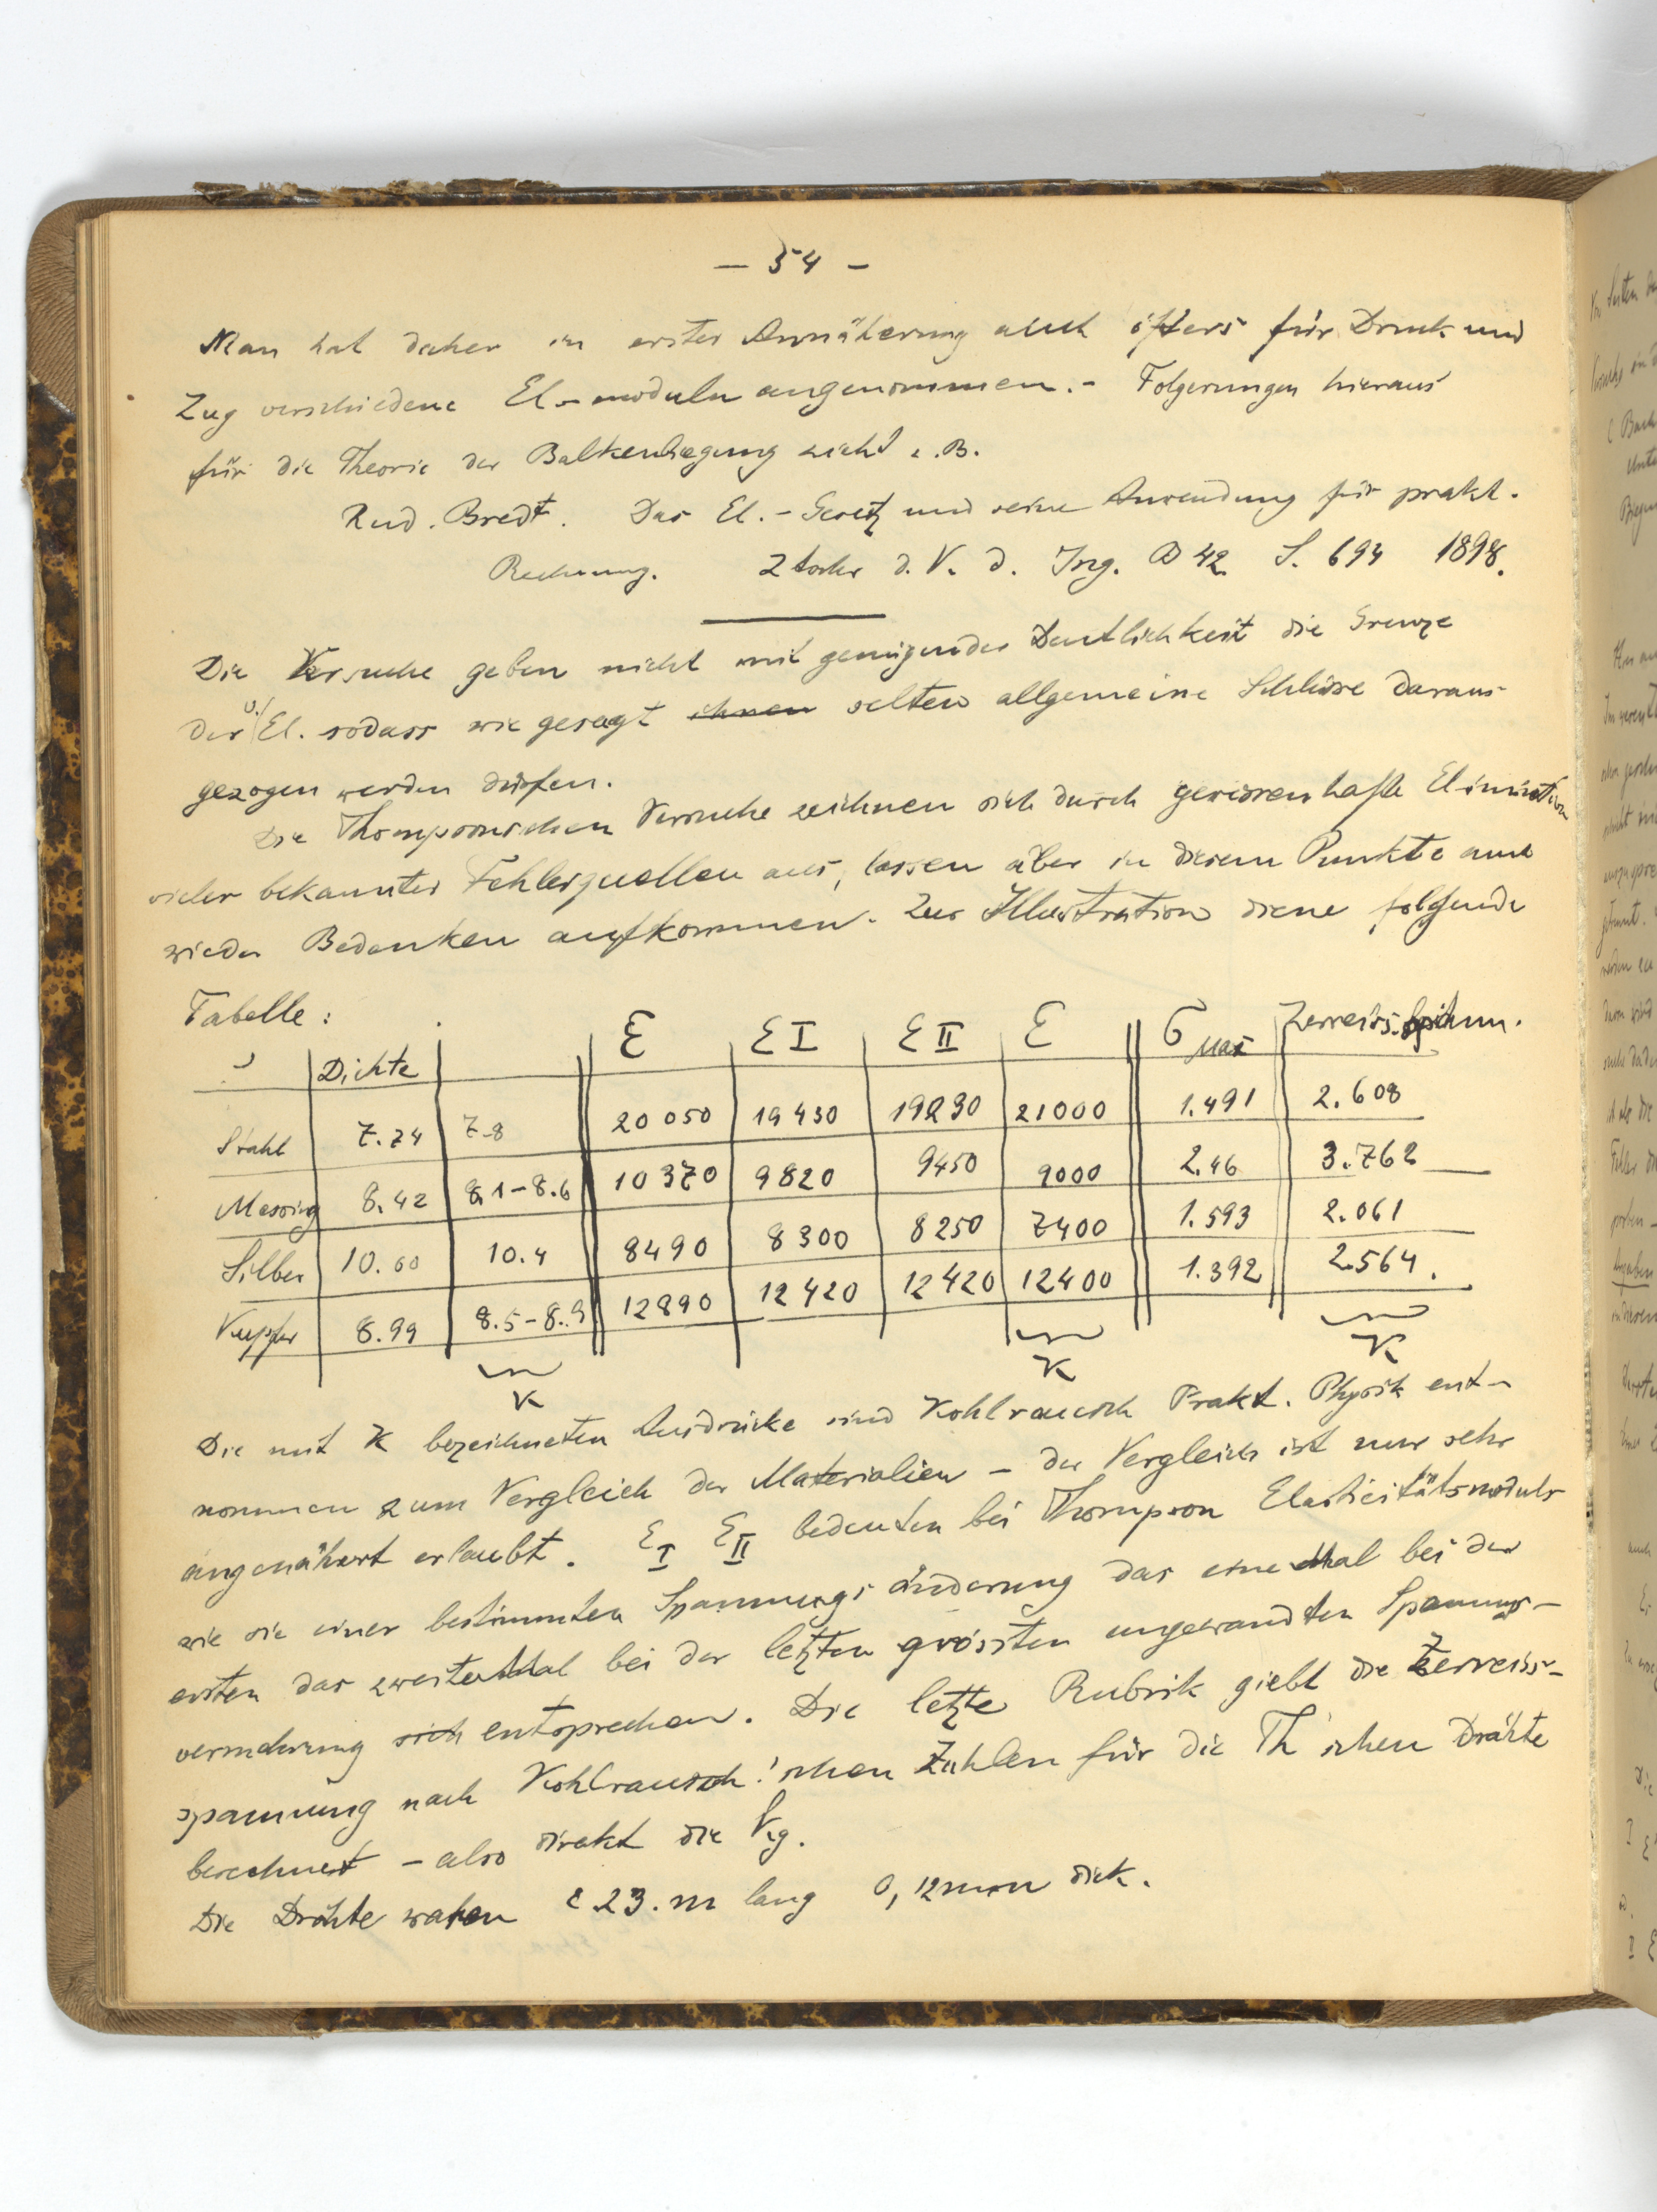 – 54 –
Man hat daher in erster Annäherung auch öfters für Druck und
Zug verschiedene El-moduln angenommen. - Folgerungen hieraus
für die Theorie der Balkenbiegung zieht z.B.
Rud. Bredt. Das El.-Gesetz und seine Anwendung für prakt.
Rechnung. Ztschr d. V. d. Ing. B 42 S. 694 1898.
Die Versuche geben nicht mit genügender Deutlichkeit die Grenze
der v. El. sodass wie gesagt ihnen selten allgemeine Schlüsse daraus
gezogen werden dürfen.
Die Thompsonschen Versuche zeichnen sich durch gewissenhafte Elimination
vieler bekannter Fehlerquellen aus, lassen aber in diesem Punkte auch
wieder Bedenken aufkommen. Zur Illustration diene folgende
Tabelle:
Dichte E E I E II E σ Max Zerreiss.spann.
Stahl 7.74 7-8 20 050 19 430 19230 21000 1.491 2.608
Messing 8.42 8.1-8.6 10 370 9820 9450 9000 2.46 3.762
Silber 10.60 10.4 8490 8300 8250 7400 1.593 2.061
Kupfer 8.99 8.5-8.9 12890 12420 12420 12400 1.392 2.564.
K K K
Die mit K bezeichneten Ausdrücke sind Kohlrausch Prakt. Physik ent-
nommen zum Vergleich der Materialien – der Vergleich ist nur sehr
angenähert erlaubt. E I E II bedeuten bei Thompson Elasticitätsmoduls
wie sie einer bestimmten Spannungsänderung das eine Mal bei der
ersten das zweite Mal bei der letzten grössten angewandten Spannungs-
vermehrung sich entsprechen. Die letzte Rubrik giebt die Zerreiss-
spannung nach Kohlrausch'schen Zahlen für die Th'schen Drähte
berechnet – also direkt die Vg.
Die Drähte waren c 23. m lang 0,12mm dick.